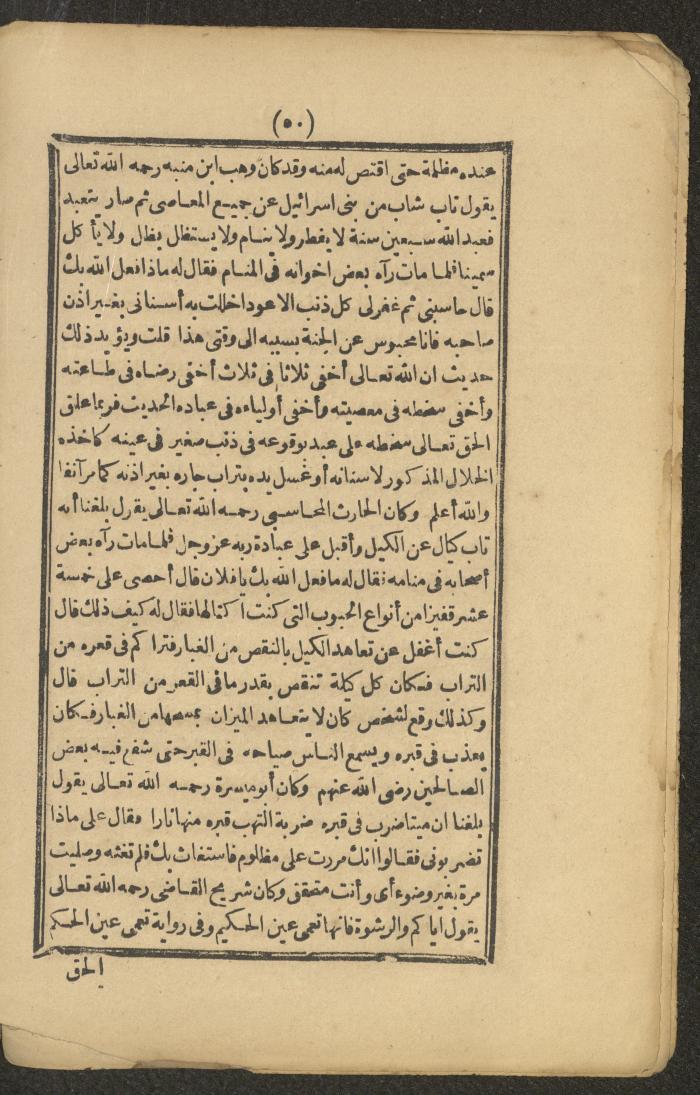 (٥٠)
عنده مظلمة حتى اقتص له منه وقد كان وهب ابن منبه رحمه الله تعالى
يقول تاب شاب من بنى اسرائيل عن جميع المعاصى ثم صار يتعبد
فعبد الله سبعين سنة لا يفطر ولا ينام ولا يستظل بظل ولا يأكل
سمينا فلما مات رآه بعض اخوانه فى المنام فقال له ماذا فعل الله بك
قال حاسبنى ثم غفر لى كل ذنب الا عودا خللت به أسنانى بغير اذن
صاحبه فانا محبوس عن الجنة بسببه الى وقتى هذا قلت ويؤيد ذلك
حديث ان الله تعالى أخفى ثلاثا فى ثلاث أخفى رضاه فى طاعته
وأخفى سخطه فى معصيته وأخفى أولياءه فى عباده الحديث فربما علق
الحق تعالى سخطه على عبد بوقوعه فى ذنب صغير فى عينه كاخذه
الخلال المذكور لاسنانه أو غسل يده بتراب جاره بغير اذنه كما مر آنفا
والله أعلم وكان الحارث المحاسبى رحمه الله تعالى يقول بلغنا أنه
تاب كيال عن الكيل وأقبل على عبادة ربه عز وجل فلما مات رآه بعض
أصحابه فى منامه فقال له ما فعل الله بك يا فلان قال أحصى على خمسة
عشر قفيزا من أنواع الحبوب التى كنت أكتالها فقال له كيف ذلك قال
كنت أغفل عن تعاهد الكيل بالنقص من الغبار فتراكم فى قعره من
التراب فكان كل كيلة تنقص بقدر ما فى القعر من التراب قال
وكذلك وقع لشخص كان لا يتعاهد الميزان بمسحها من الغبار فكان
يعذب فى قبره ويسمع الناس صياحه فى القبر حتى شفع فيه بعض
الصالحين رضى الله عنهم وكان أبو ميسرة رحمه الله تعالى يقول
بلغنا ان ميتا ضرب فى قبره ضربة التهب قبره منها نارا فقال على ماذا
تضربونى فقالوا انك مررت على مظلوم فاستغاث بك فلم تغثه وصليت
مرة بغير وضوء أى وأنت متحقق وكان شريح القاضى رحمه الله تعالى
يقول اياكم والرشوة فانها تعمى عين الحكيم وفى رواية تعمى عين الحكم
الحق